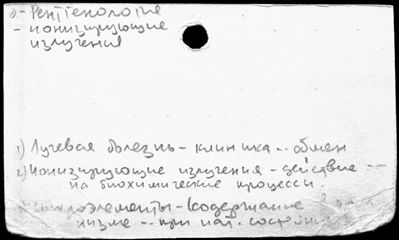 - Рентгенология
- ионизирующие
излучения
1) Лучевая болезнь - клиника .. обмен
2) ионизирующие излучения - действие --
на биохимические процессы.
микроэлементы - (содержание в
низме -- при пат. состояни